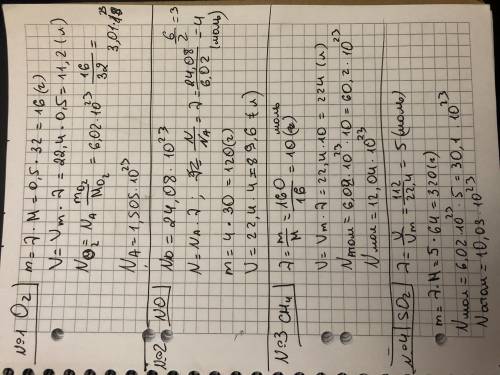 №1 O₂
m = ν·M = 0,5·32 = 16 (г)
V = Vm·ν = 22,4·0,5 = 11,2 (л)
N O₂ = NA mO₂/MO₂ = 6,02·10²³ 16/32 =
3,01·10²³
NA = 1,505·10²³
№2 NO
NO = 24,08·10²³
N = NA·ν; N/NA = ν = 24,08/6,02 = 4
6/2 = 3
(моль)
m = 4·30 = 120 (г)
V = 22,4·4 = 89,6 (л)
№3 CH₄
ν = m/M = 160/16 = 10 (г) моль
V = Vm·ν = 22,4·10 = 224 (л)
Nмол = 6,02·10²³·10 = 60,2·10²³
Nмол = 12,04·10²³
№4 SO₂
ν = V/Vm = 112/22,4 = 5 (моль)
m = ν·M = 5·64 = 320 (г)
Nмол = 6,02·10²³·5 = 30,1 10²³
Nатом = 10,03·10²³